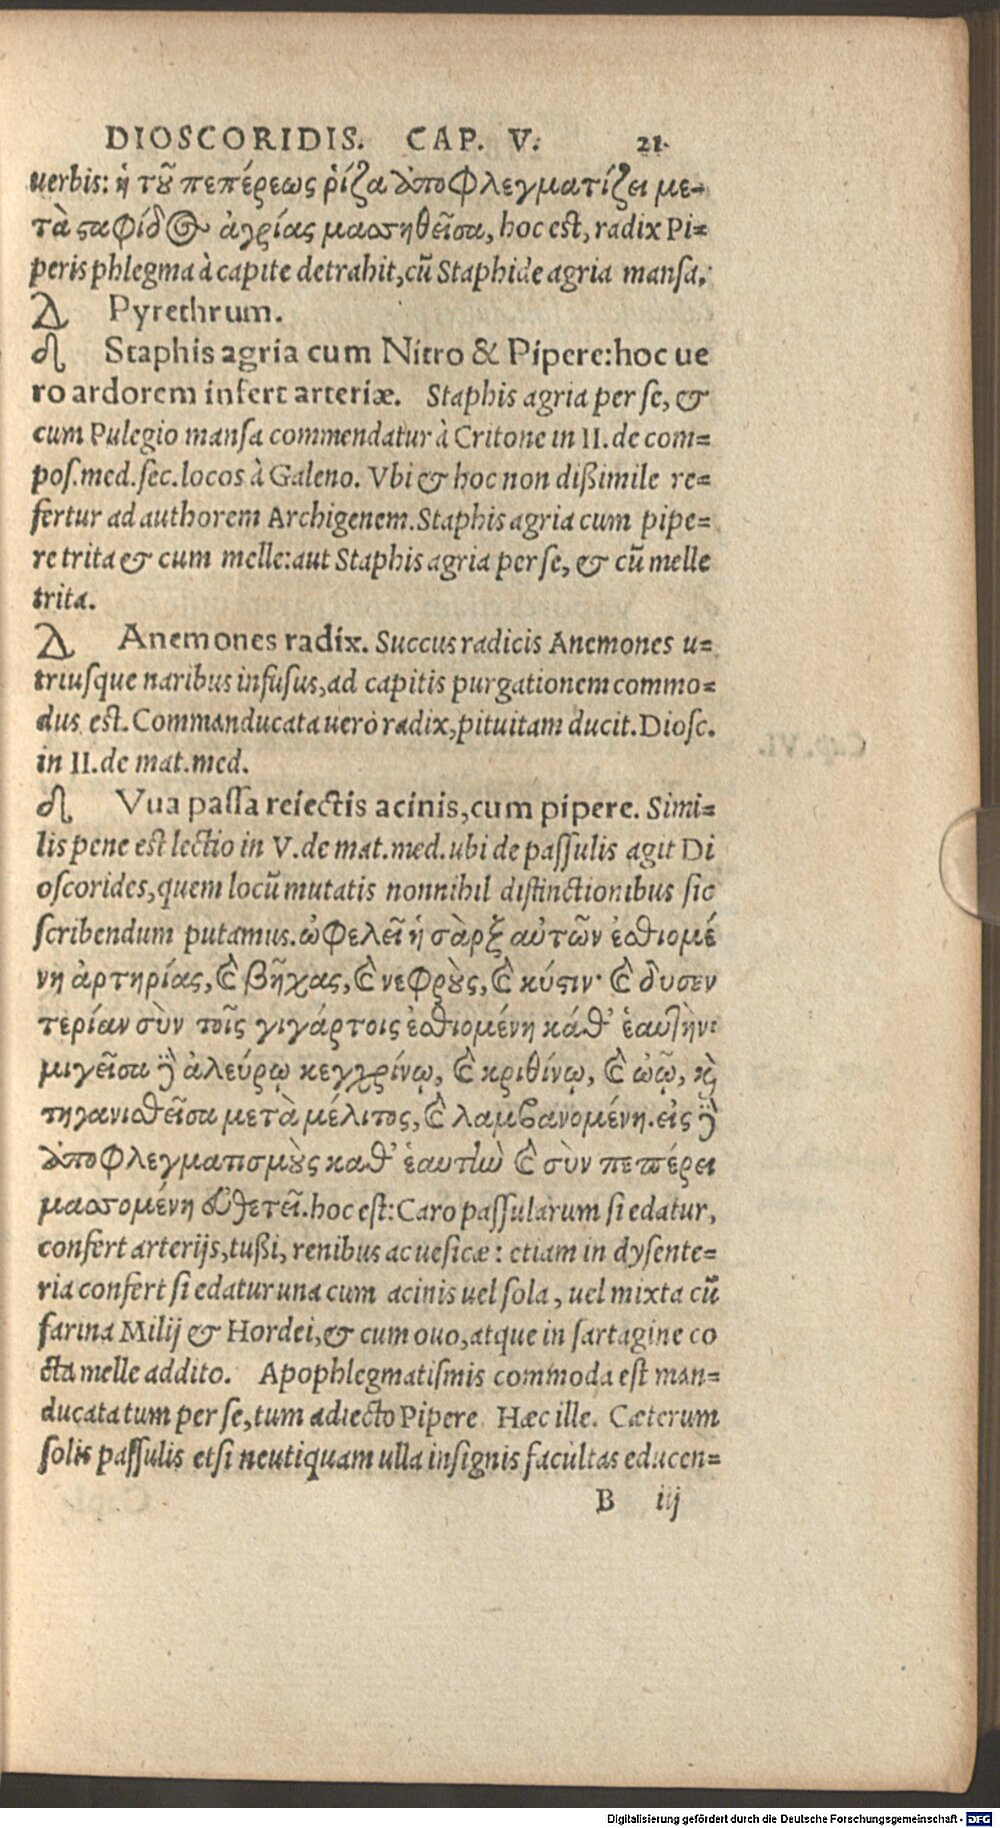 DIOSCORIDIS. CAP. V. 21.
uerbis: ἡ τοῦ πεπέρεως ῥίζα ἀποφλεγματίζει με-
τὰ ςαφίδος ἀγρίας μασσηθεῖσα, hoc est, radix Pi=
peris phlegma à capite detrahit, cũ Staphide agria mansa.
Δ Pyrethrum.
Staphis agria cum Nitro & Pipere: hoc ue
ro ardorem infert arteriæ. Staphis agria per se, &
cum Pulegio mansa commendatur à Critone in II. de com=
pos. med. sec. locos à Galeno. Vbi & hoc non dißimile re=
fertur ad authorem Archigenem. Staphis agria cum pipe=
re trita & cum melle: aut Staphis agria per se, & cũ melle
trita.
Δ Anemones radix. Succus radicis Anemones u=
triusque naribus infusus, ad capitis purgationem commo=
dus est. Commanducata uerò radix, pituitam ducit. Diosc.
in II. de mat. med.
Vua passa reiectis acinis, cum pipere. Simi=
lis pene est lectio in V. de mat. med. ubi de passulis agit Di
oscorides, quem locũ mutatis nonnihil distinctionibus sic
scribendum putamus. ὠφελεῖ ἡ σὰρξ αὐτῶν ἐσθιομέ
νη ἀρτηρίας, καὶ βῆχας, καὶ νεφροὺς, καὶ κύςιν· καὶ δυσεν
τερίαν σὺν τοῖς γιγάρτοις ἐσθιομένη κάθ' ἑαυτήν:
μιγεῖσα δὲ ἀλεύρῳ κεγχρίνῳ, καὶ κριθίνῳ, καὶ ὠῷ, καὶ
τηγανισθεῖσα μετὰ μέλιτος, καὶ λαμβανομένη. εἰς δὲ
ἀποφλεγματισμοὺς καθ' ἑαυτὴν καὶ σὺν πεπέρει
μασσομένη εὐθετεῖ. hoc est: Caro passularum si edatur,
confert arterijs, tußi, renibus ac uesicæ: etiam in dysente=
ria confert si edatur una cum acinis uel sola, uel mixta cũ
farina Milij & Hordei, & cum ouo, atque in sartagine co
cta melle addito. Apophlegmatismis commoda est man=
ducata tum per se, tum adiecto Pipere. Hæc ille. Cæterum
solis passulis etsi neutiquam ulla insignis facultas educen=
B iij
Digitalisierung gefördert durch die Deutsche Forschungsgemeinschaft - DFG